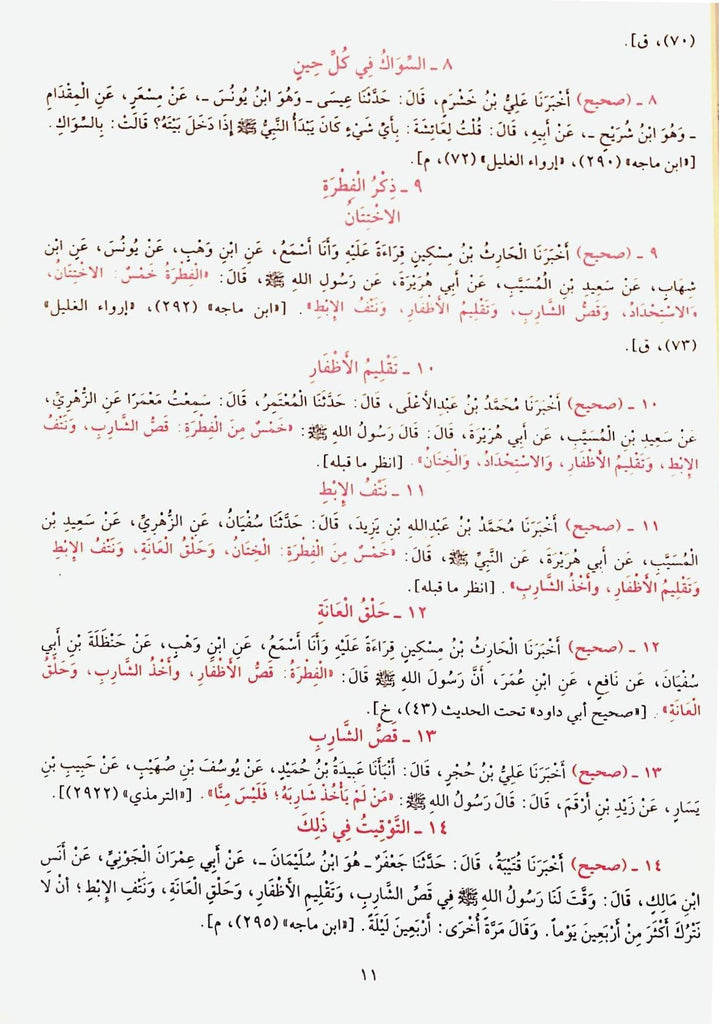 (٧٠)، ق].
٨ ـ السِّوَاكُ فِي كُلِّ حِينٍ
٨ ـ (صحيح) أَخْبَرَنَا عَلِيُّ بْنُ خَشْرَمٍ، قَالَ: حَدَّثَنَا عِيسَى ـ وَهُوَ ابْنُ يُونُسَ ـ، عَنْ مِسْعَرٍ، عَنِ الْمِقْدَامِ
ـ وَهُوَ ابْنُ شُرَيْحٍ ـ، عَنْ أَبِيهِ، قَالَ: قُلْتُ لِعَائِشَةَ: بِأَيِّ شَيْءٍ كَانَ يَبْدَأُ النَّبِيُّ ﷺ إِذَا دَخَلَ بَيْتَهُ؟ قَالَتْ: بِالسِّوَاكِ.
[«ابن ماجه» (٢٩٠)، «إرواء الغليل» (٧٢)، م].
٩ ـ ذِكْرُ الْفِطْرَةِ
الاخْتِتَانُ
٩ ـ (صحيح) أَخْبَرَنَا الْحَارِثُ بْنُ مِسْكِينٍ قِرَاءَةً عَلَيْهِ وَأَنَا أَسْمَعُ، عَنِ ابْنِ وَهْبٍ، عَنْ يُونُسَ، عَنِ ابْنِ
شِهَابٍ، عَنْ سَعِيدِ بْنِ الْمُسَيَّبِ، عَنْ أَبِي هُرَيْرَةَ، عَن رَسُولِ اللهِ ﷺ، قَالَ: «الْفِطْرَةُ خَمْسٌ: الاخْتِتَانُ،
وَالاسْتِحْدَادُ، وَقَصُّ الشَّارِبِ، وَتَقْلِيمُ الأَظْفَارِ، وَنَتْفُ الإِبْطِ». [«ابن ماجه» (٢٩٢)، «إرواء الغليل»
(٧٣)، ق].
١٠ ـ تَقْلِيمُ الأَظْفَارِ
١٠ ـ (صحيح) أَخْبَرَنَا مُحَمَّدُ بْنُ عَبْدِالأَعْلَى، قَالَ: حَدَّثَنَا الْمُعْتَمِرُ، قَالَ: سَمِعْتُ مَعْمَرًا عَنِ الزُّهْرِيِّ،
عَنْ سَعِيدِ بْنِ الْمُسَيَّبِ، عَن أَبِي هُرَيْرَةَ، قَالَ: قَالَ رَسُولُ اللهِ ﷺ: «خَمْسٌ مِنَ الْفِطْرَةِ: قَصُّ الشَّارِبِ، وَنَتْفُ
الإِبْطِ، وَتَقْلِيمُ الأَظْفَارِ، وَالاسْتِحْدَادُ، وَالْخِتَانُ». [انظر ما قبله].
١١ ـ نَتْفُ الإِبْطِ
١١ ـ (صحيح) أَخْبَرَنَا مُحَمَّدُ بْنُ عَبْدِاللهِ بْنِ يَزِيدَ، قَالَ: حَدَّثَنَا سُفْيَانُ، عَنِ الزُّهْرِيِّ، عَنْ سَعِيدِ بْنِ
الْمُسَيَّبِ، عَن أَبِي هُرَيْرَةَ، عَنِ النَّبِيِّ ﷺ، قَالَ: «خَمْسٌ مِنَ الْفِطْرَةِ: الْخِتَانُ، وَحَلْقُ الْعَانَةِ، وَنَتْفُ الإِبْطِ
وَتَقْلِيمُ الأَظْفَارِ، وأَخْذُ الشَّارِبِ». [انظر ما قبله].
١٢ ـ حَلْقُ الْعَانَةِ
١٢ ـ (صحيح) أَخْبَرَنَا الْحَارِثُ بْنُ مِسْكِينٍ قِرَاءَةً عَلَيْهِ وَأَنَا أَسْمَعُ، عَنِ ابْنِ وَهْبٍ، عَنْ حَنْظَلَةَ بْنِ أَبِي
سُفْيَانَ، عَن نَافِعٍ، عَنِ ابْنِ عُمَرَ، أَنَّ رَسُولَ اللهِ ﷺ قَالَ: «الْفِطْرَةُ: قَصُّ الأَظْفَارِ، وأَخْذُ الشَّارِبِ، وَحَلْقُ
الْعَانَةِ». [«صحيح أبي داود» تحت الحديث (٤٣)، خ].
١٣ ـ قَصُّ الشَّارِبِ
١٣ ـ (صحيح) أَخْبَرَنَا عَلِيُّ بْنُ حُجْرٍ، قَالَ: أَنْبَأَنَا عَبِيدَةُ بْنُ حُمَيْدٍ، عَنْ يُوسُفَ بْنِ صُهَيْبٍ، عَنْ حَبِيبِ بْنِ
يَسَارٍ، عَنْ زَيْدِ بْنِ أَرْقَمَ، قَالَ: قَالَ رَسُولُ اللهِ ﷺ: «مَنْ لَمْ يَأْخُذْ شَارِبَهُ؛ فَلَيْسَ مِنَّا». [«الترمذي» (٢٩٢٢)].
١٤ ـ التَّوْقِيتُ فِي ذَلِكَ
١٤ ـ (صحيح) أَخْبَرَنَا قُتَيْبَةُ، قَالَ: حَدَّثَنَا جَعْفَرٌ ـ هُوَ ابْنُ سُلَيْمَانَ ـ، عَنْ أَبِي عِمْرَانَ الْجَوْنِيِّ، عَنْ أَنَسِ
ابْنِ مَالِكٍ، قَالَ: وَقَّتَ لَنَا رَسُولُ اللهِ ﷺ فِي قَصِّ الشَّارِبِ، وَتَقْلِيمِ الأَظْفَارِ، وَحَلْقِ الْعَانَةِ، وَنَتْفِ الإِبْطِ؛ أَنْ لا
نَتْرُكَ أَكْثَرَ مِنْ أَرْبَعِينَ يَوْماً. وَقَالَ مَرَّةً أُخْرَى: أَرْبَعِينَ لَيْلَةً. [«ابن ماجه» (٢٩٥)، م].
١١